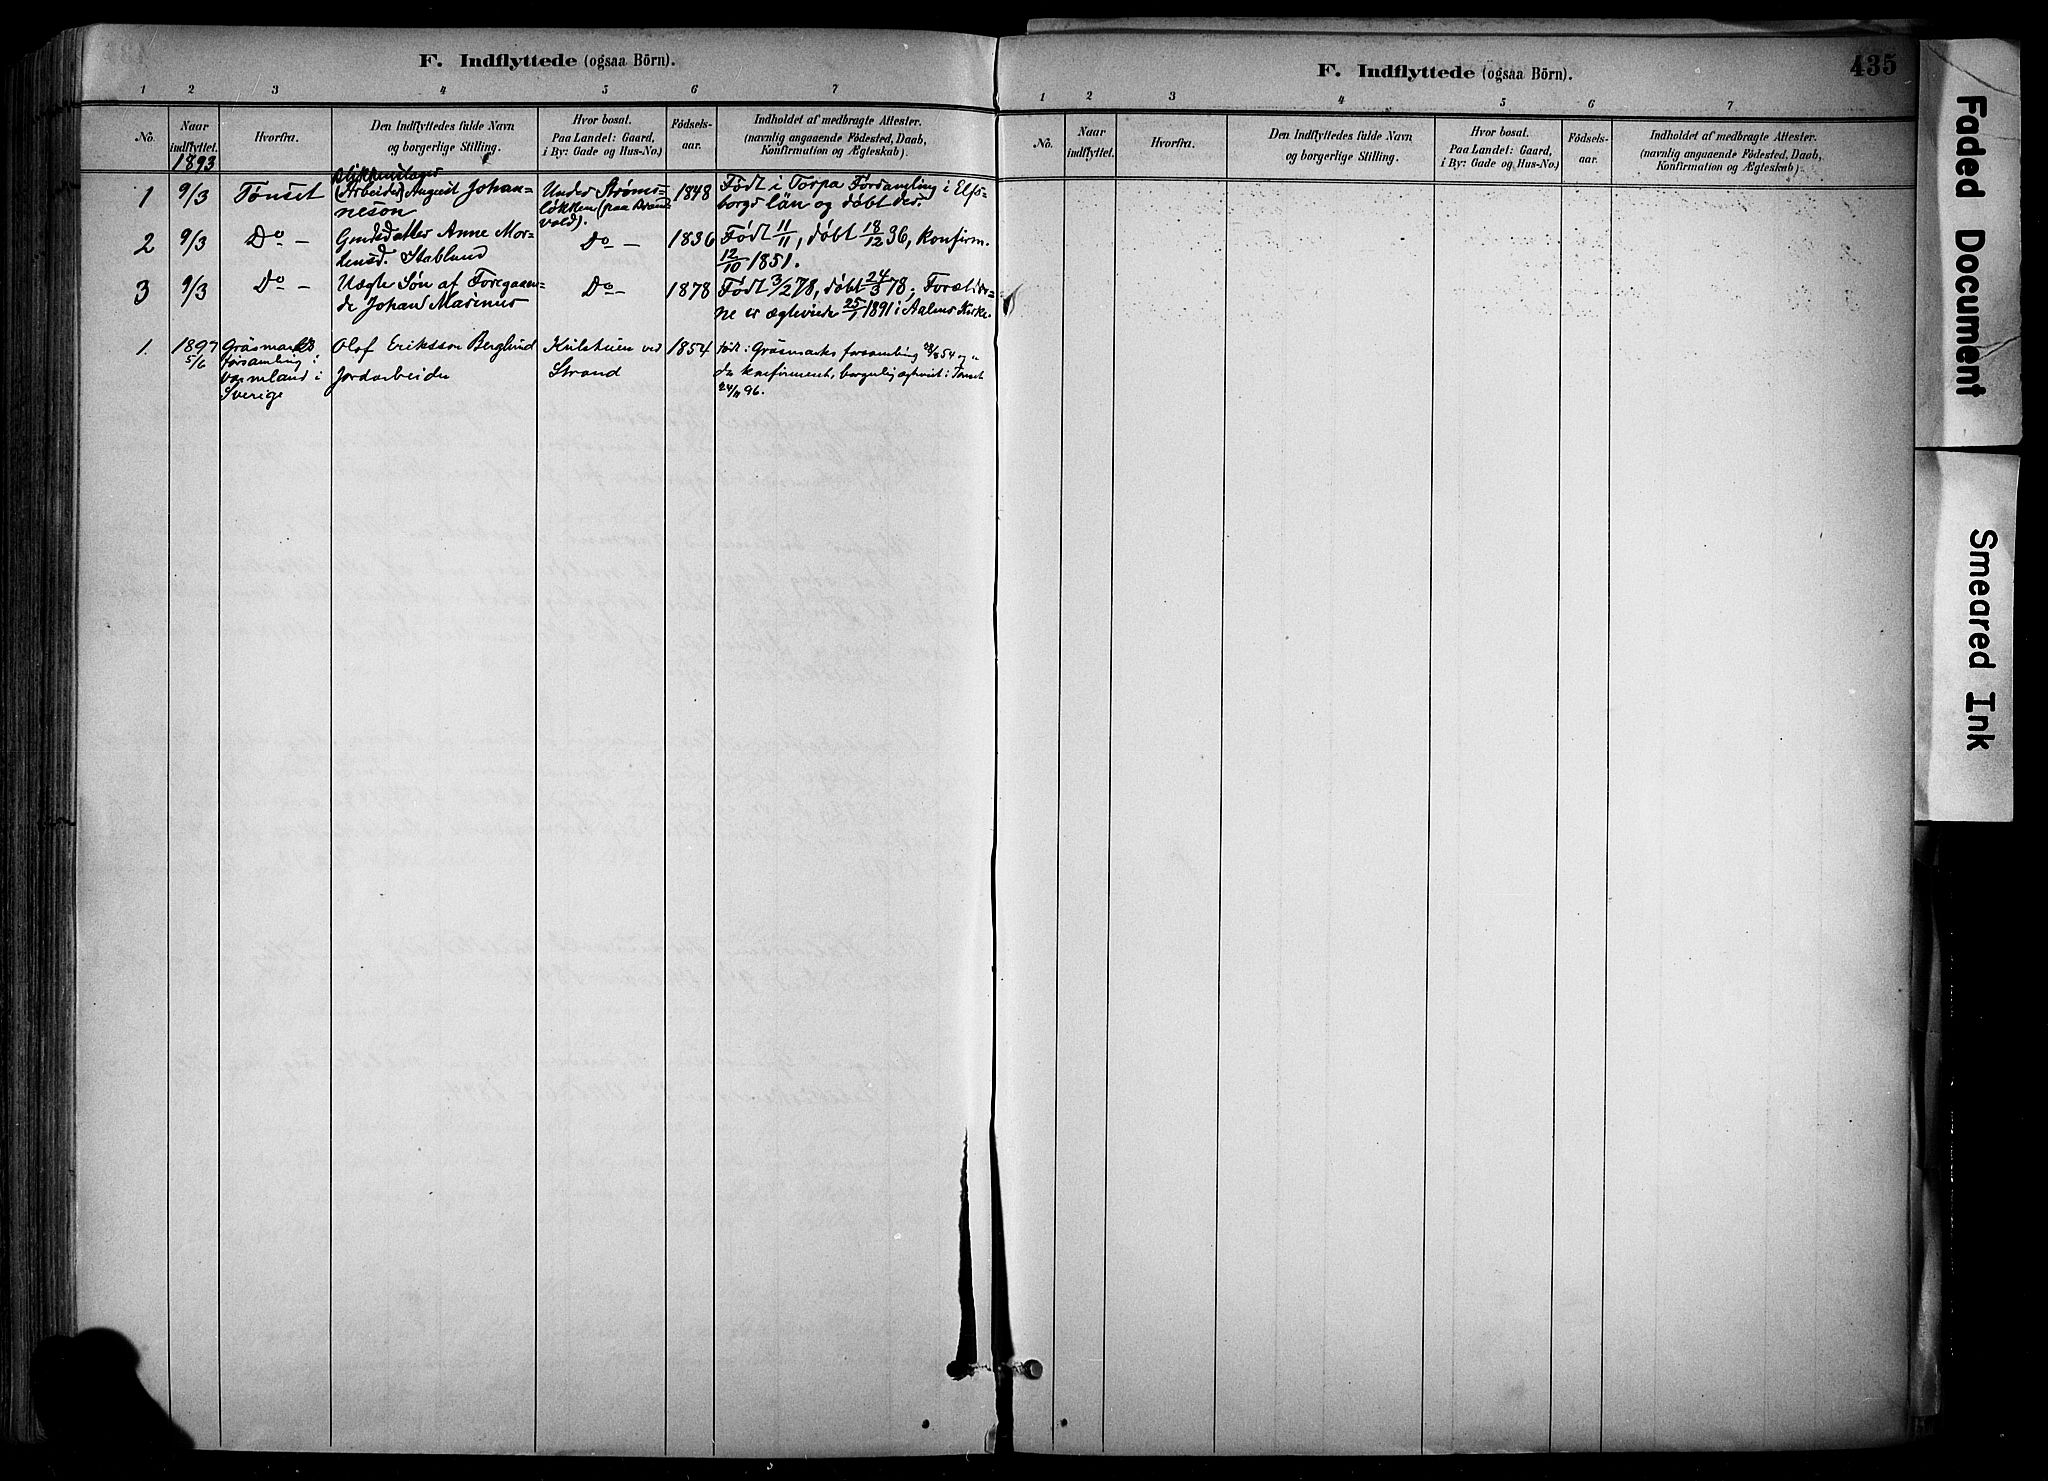 F. Indflyttede (ogsaa Börn).
1 2 3 4 5 6 7
No. Naar indflyttet. Hvorfra. Den Indflyttedes fulde Navn og borgerlige Stilling. Hvor bosat. Paa Landet: Gaard, i By: Gade og Hus-No.) Fødselsaar. Indholdet af medbragte Attester. (navnlig angaaende Fødested, Daab, Konfirmation og Ægteskab).
1893
1 9/3 Tønset (Arbeider) August Johan-
neson
Under Strøms-
løkken (paa Bran-
vold).
1848 Født i Torpa Församling i Elfs-
borgs län og döbt der.
2 9/3 Do — Gaardsdatter Anne Mor-
tensd. Stablund
Do — 1836 Født 11/11, døbt 18/12 36, konfirm.
12/10 1851.
3 9/3 Do — Uægte Søn af Foregaaen-
de Johan Marinus
Do — 1878 Født 3/2 78, døbt 24/3 78; Forældre-
ne er ægteviede 25/1 1891 i Aalens Kirke.
1. 1897
5/6
Gräsmarks
församling i
Varmland i
Sverige
Olof Eriksson Berglund
Jordarbeider
ved
Strand
1854 født i Gräsmarks forsamling
der konfirmeret, borgerlig
24/11 96.
F. Indflyttede (ogsaa Börn).
435
1 2 3 4 5 6 7
No. Naar indflyttet. Hvorfra. Den Indflyttedes fulde Navn og borgerlige Stilling. Hvor bosat. Paa Landet: Gaard, i By: Gade og Hus-No.) Fødselsaar. Indholdet af medbragte Attester. (navnlig angaaende Fødested, Daab, Konfirmation og Ægteskab).
Faded Document
Smeared Ink